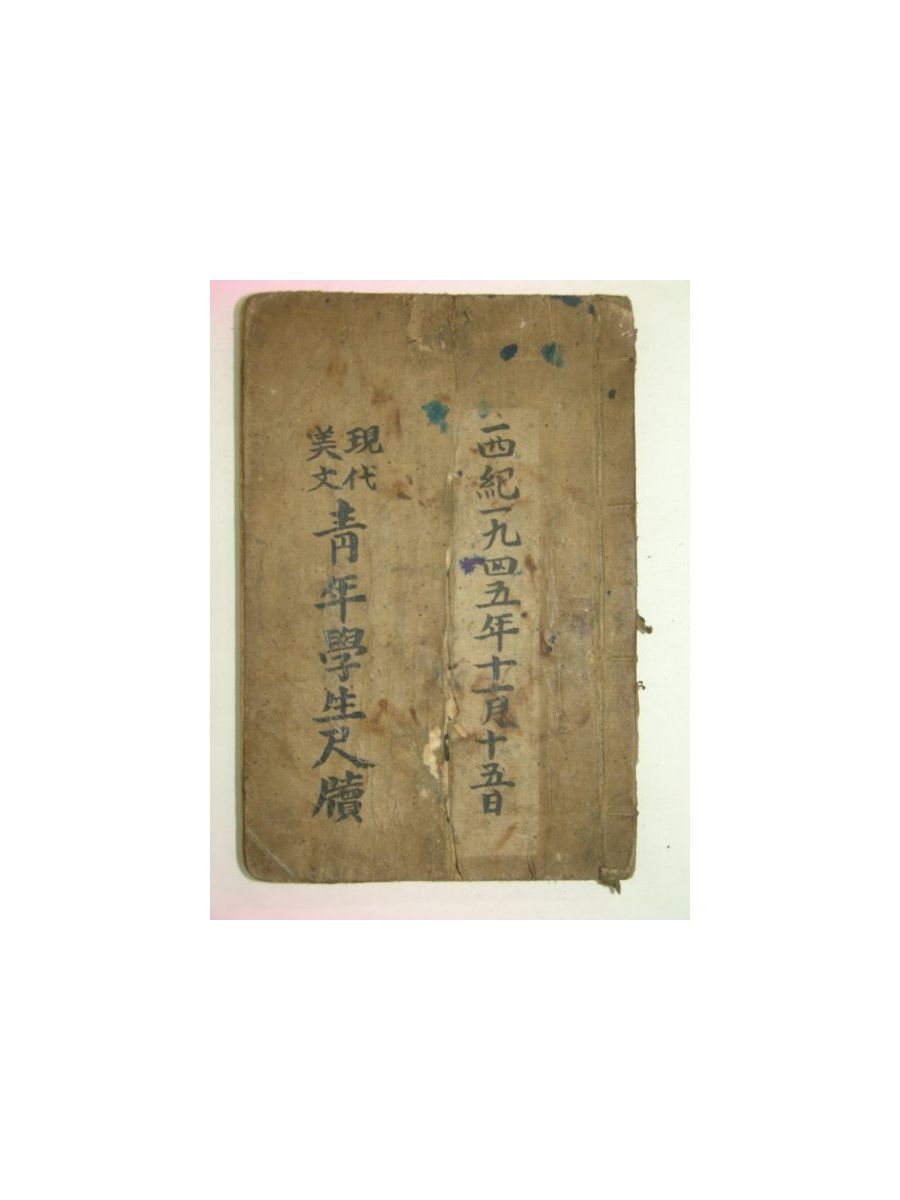 一西紀一九四五年十一月十五日
現代
美文
靑年學生尺牘